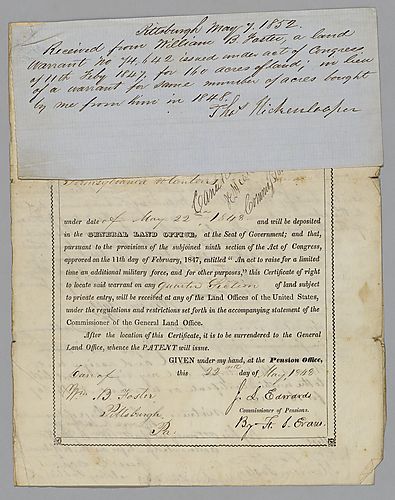 Pittsburgh May 7, 1852.
Received from William B. Foster, a land
Warrant No 74,642 issued under act of Congress
of 11th Feby 1847, for 160 acres of land; in lieu
of a warrant for same number of acres bought
by me from him in 1848.
Thos Hickenlooper
Pennsylvania Volunteers
under date of May 22nd 1848 and will be deposited
in the GENERAL LAND OFFICE, at the Seat of Government; and that,
pursuant to the provisions of the subjoined ninth section of the Act of Congress,
approved on the 11th day of February, 1847, entitled "An act to raise for a limited
time an additional military force, and for other purposes," this Certificate of right
to locate said warrant on any Quarter Section of land subject
to private entry, will be received at any of the Land Offices of the United States,
under the regulations and restrictions set forth in the accompanying statement of the
Commissioner of the General Land Office.
After the location of this Certificate, it is to be surrendered to the General
Land Office, whence the PATENT will issue.
GIVEN under my hand, at the Pension Office,
this 22nd day of May 1848
Care of
Wm B Foster
Pittsburgh
Pa.
J. L. Edwards
Commissioner of Pensions.
By H. S. Evans